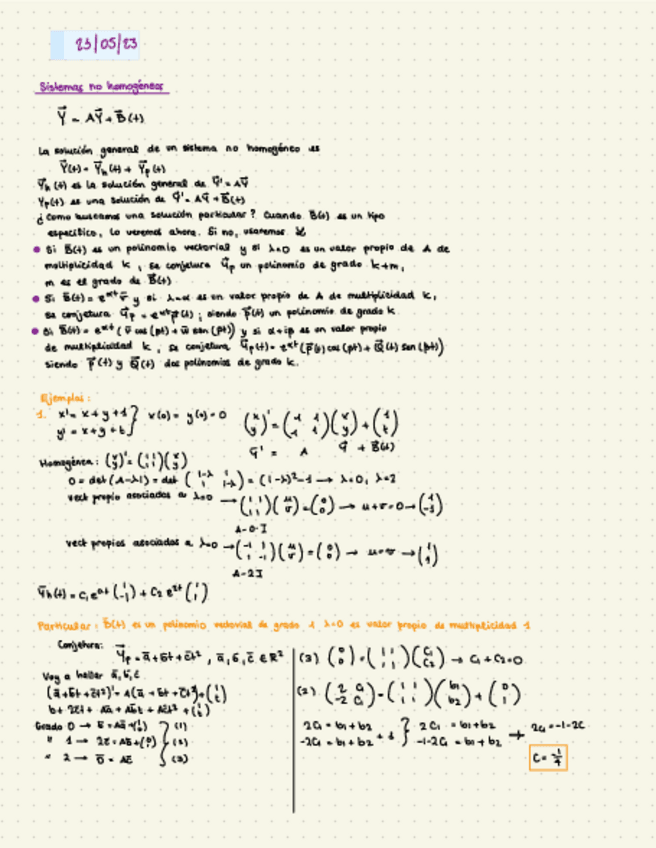 23/05/23
Sistemas no homogéneos
Y⃗ = AY⃗ + B⃗(t)
La solución general de un sistema no homogéneo es
Y⃗(t) = Y⃗h(t) + Y⃗p(t)
Y⃗h(t) es la solución general de Y⃗' = AY⃗
Yp(t) es una solución de Y⃗' = AY⃗ + B⃗(t)
¿Como buscamos una solución particular? Cuando B⃗(t) es un tipo
específico, lo veremos ahora. Si no, usaremos
• Si B⃗(t) es un polinomio vectorial y si λ=0 es un valor propio de A de
multiplicidad k, se conjetura Y⃗p un polinomio de grado k+m,
m es el grado de B⃗(t)
• Si B⃗(t) = e^αt v⃗ y si λ=α es un valor propio de A de multiplicidad k,
se conjetura Y⃗p = e^αt p⃗(t); siendo p⃗(t) un polinomio de grado k
• Si B⃗(t) = e^αt (v⃗ cos(βt) + w⃗ sen(βt)) y si α+iβ es un valor propio
de multiplicidad k, se conjetura Y⃗p(t) = e^αt (P⃗(t) cos(βt) + Q⃗(t) sen(βt))
siendo P⃗(t) y Q⃗(t) dos polinomios de grado k.
Ejemplos:
1. x' = x + y + 1 } x(0) = y(0) = 0 (x y)' = (1 1 1 1)(x y) + (1 t)
y' = x + y + t
Y⃗' = A Y⃗ + B⃗(t)
Homogénea: (x y)' = (1 1 1 1)(x y)
0 = det(A-λI) = det (1-λ 1 1 1-λ) = (1-λ)²-1 → λ=0, λ=2
vect propio asociados a λ=0 → (1 1 1 1)(u v) = (0 0) → u+v=0 → (1 -1)
A-0·I
vect propios asociados a λ=0 → (-1 1 1 -1)(u v) = (0 0) → u=v → (1 1)
A-2I
Y⃗h(t) = C1 e^0t (1 -1) + C2 e^2t (1 1)
Particular: B⃗(t) es un polinomio vectorial de grado 1 λ=0 es valor propio de multiplicidad 1
Conjetura:
Y⃗p = a̅ + b̅t + c̅t², a̅, b̅, c̅ ∈ R²
Voy a hallar a̅, b̅, c̅
(a̅ + b̅t + c̅t²)' = A(a̅ + b̅t + c̅t²) + (1 t)
b + 2ct = Aa + Abt + Act² + (1 t)
Grado 0 → b̅ = Aa̅ + (1 0) } (1)
" 1 → 2c̅ = Ab̅ + (0 1) (2)
" 2 → 0̅ = Ac̅ (3)
(3) (0 0) = (1 1 1 1)(C1 C2) → C1 + C2 = 0
(2) (2 C1 -2 C1) = (1 1 1 1)(b1 b2) + (0 1)
2C1 = b1 + b2 } 2C1 = b1 + b2 → 2C1 = -1-2C
-2C1 = b1 + b2 + 1 -1-2C1 = b1 + b2
C = -1/4